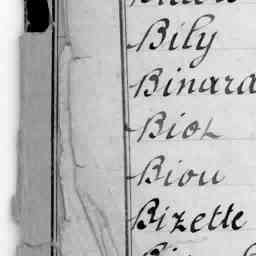 Bily
Binard
Biot
Biou
Bizette